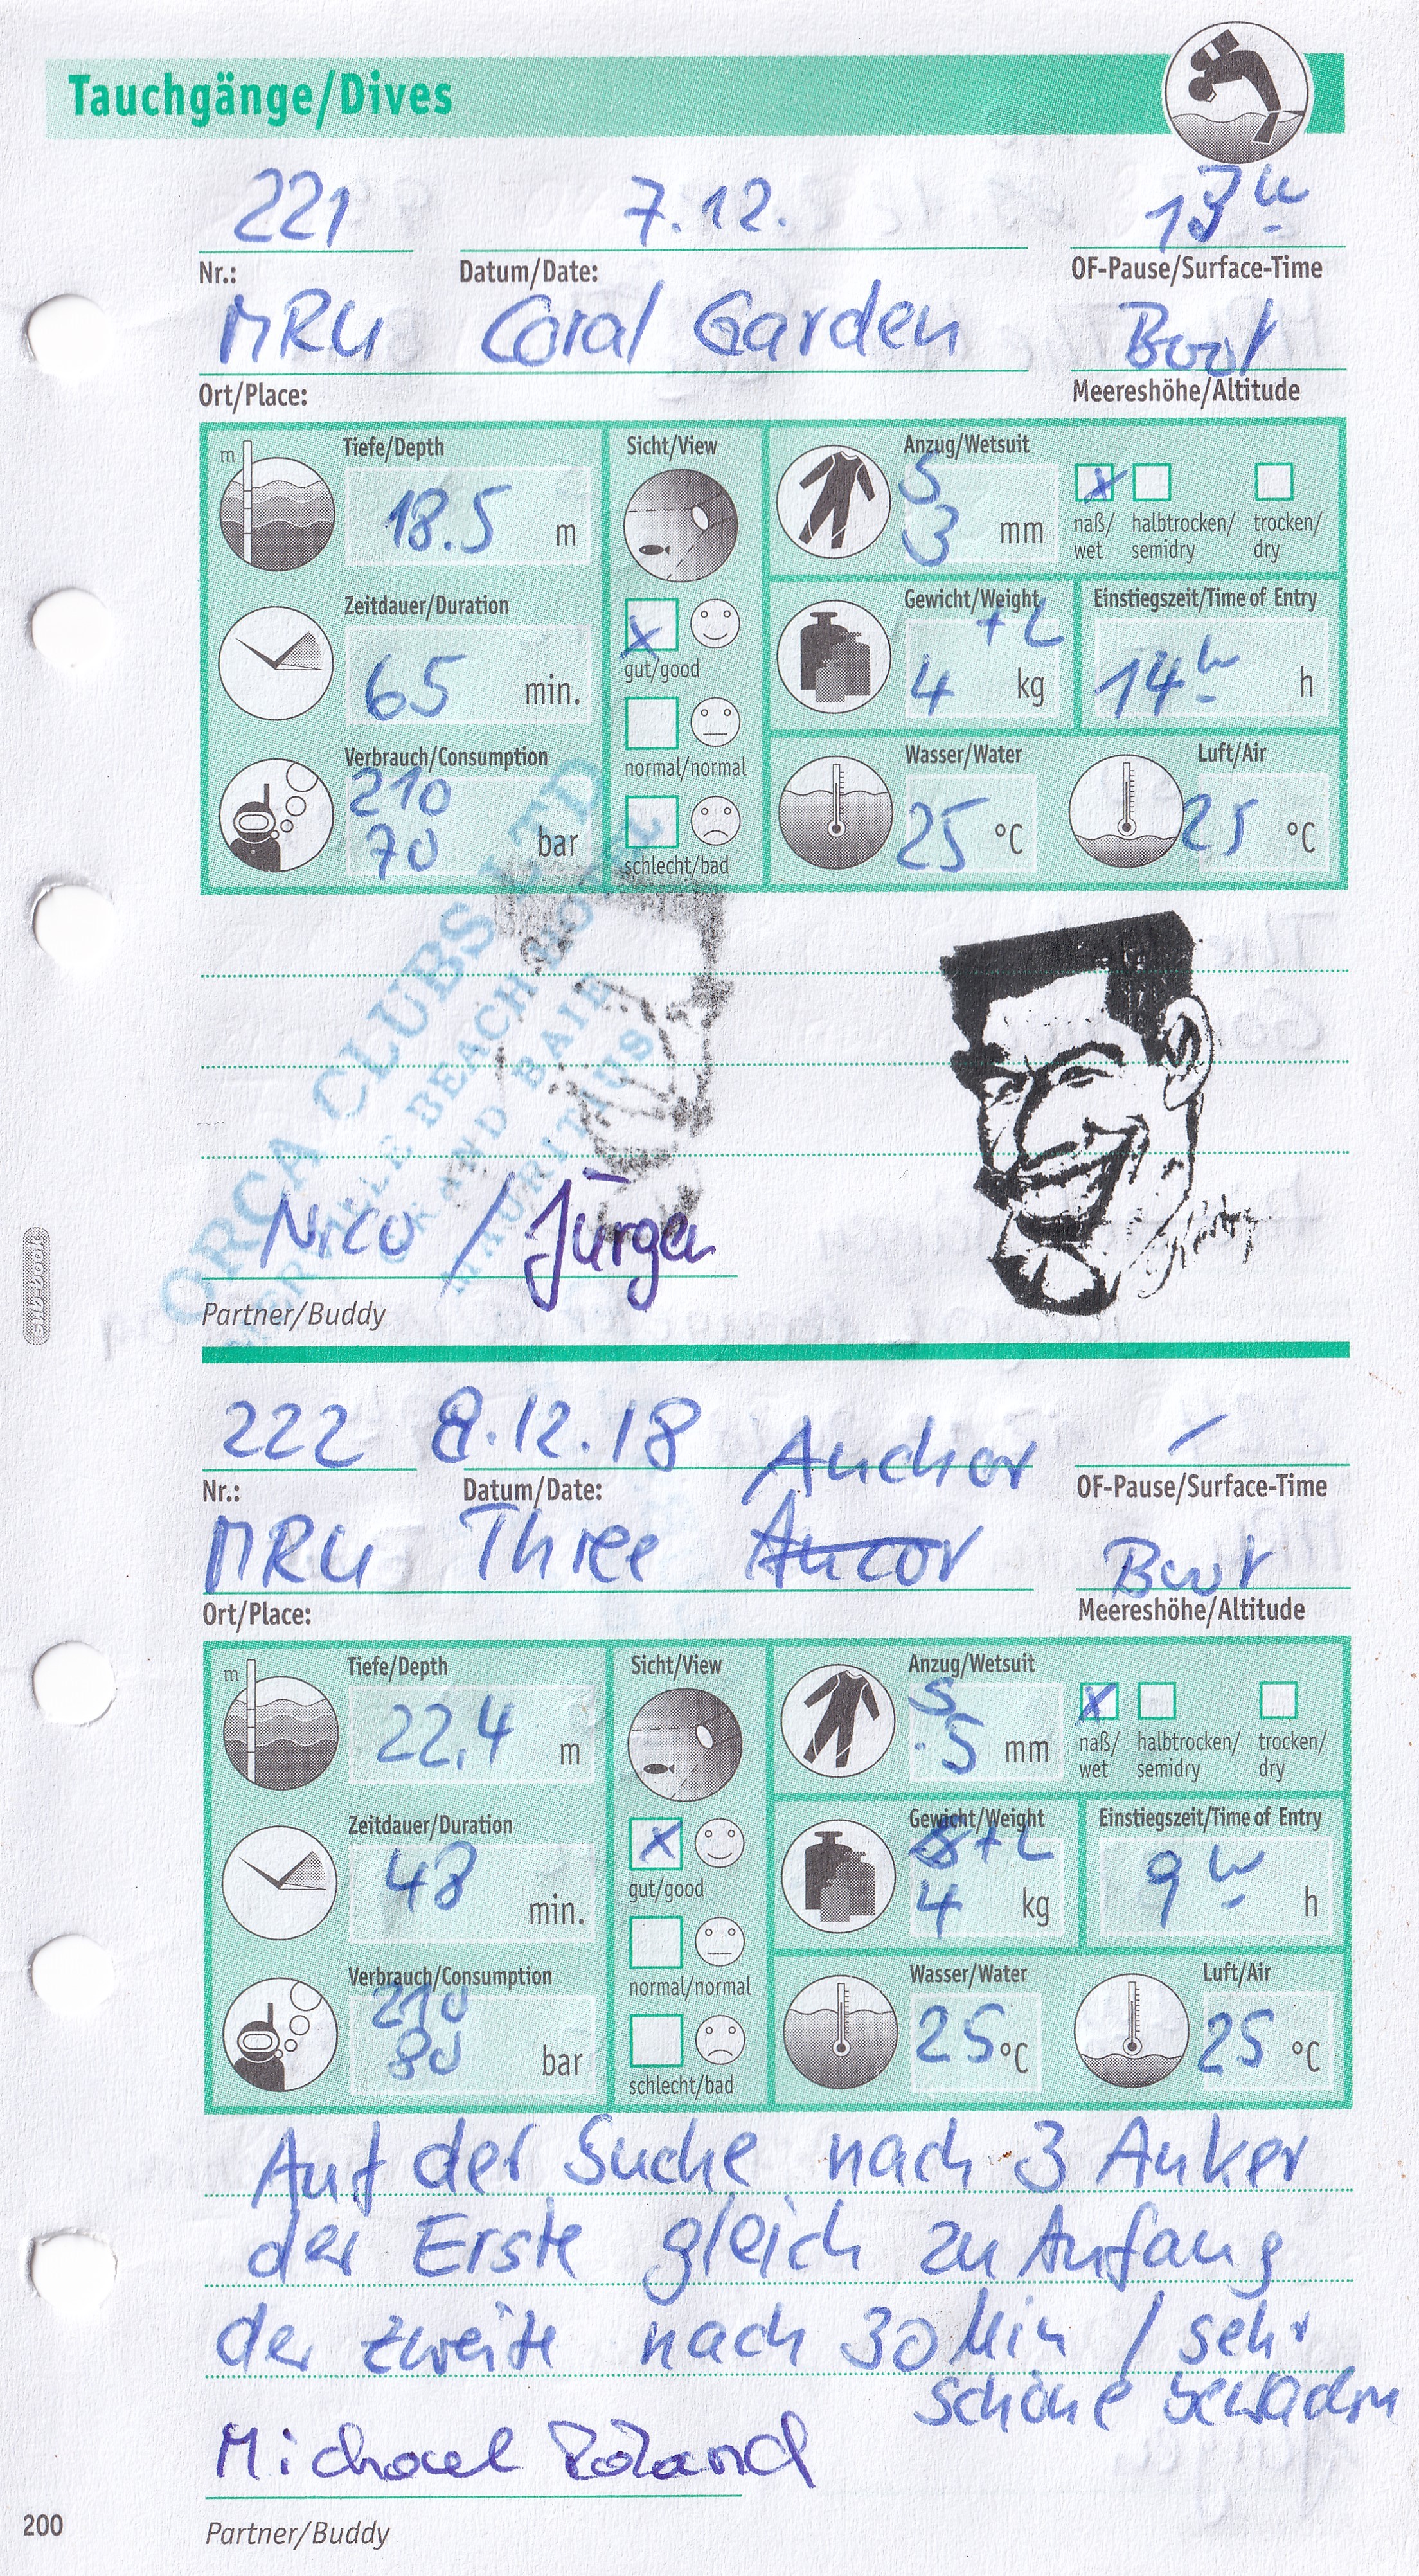 Tauchgänge/Dives
221 7.12. 13 h
Nr.: Datum/Date: OF-Pause/Surface-Time
MRU Coral Garden Boot
Ort/Place: Meereshöhe/Altitude
m Tiefe/Depth Sicht/View Anzug/Wetsuit
5
18.5 m 3 mm
naß/ halbtrocken/ trocken/
wet semidry dry
Zeitdauer/Duration Gewicht/Weight Einstiegszeit/Time of Entry
+2
65 min. gut/good 4 kg 14 h h
normal/normal
Verbrauch/Consumption Wasser/Water Luft/Air
210
70 bar 25 °C 25 °C
schlecht/bad
ORCA CLUBS LTD
BEACH
GRAND BAIE
MAURITIUS
Nico / Jürgen
Partner/Buddy
sub-book
222 8.12.18 Anchor
Nr.: Datum/Date: OF-Pause/Surface-Time
MRU Three Ancor Boot
Ort/Place: Meereshöhe/Altitude
m Tiefe/Depth Sicht/View Anzug/Wetsuit
5
22,4 m 5 mm
naß/ halbtrocken/ trocken/
wet semidry dry
Zeitdauer/Duration Gewicht/Weight Einstiegszeit/Time of Entry
+2
48 min. gut/good 4 kg 9 h h
normal/normal
Verbrauch/Consumption Wasser/Water Luft/Air
210
80 bar 25 °C 25 °C
schlecht/bad
Auf der Suche nach 3 Anker
der Erste gleich zu Anfang
der zweite nach 30 Min / sehr
schöne bewachsn
Michael Roland
200 Partner/Buddy